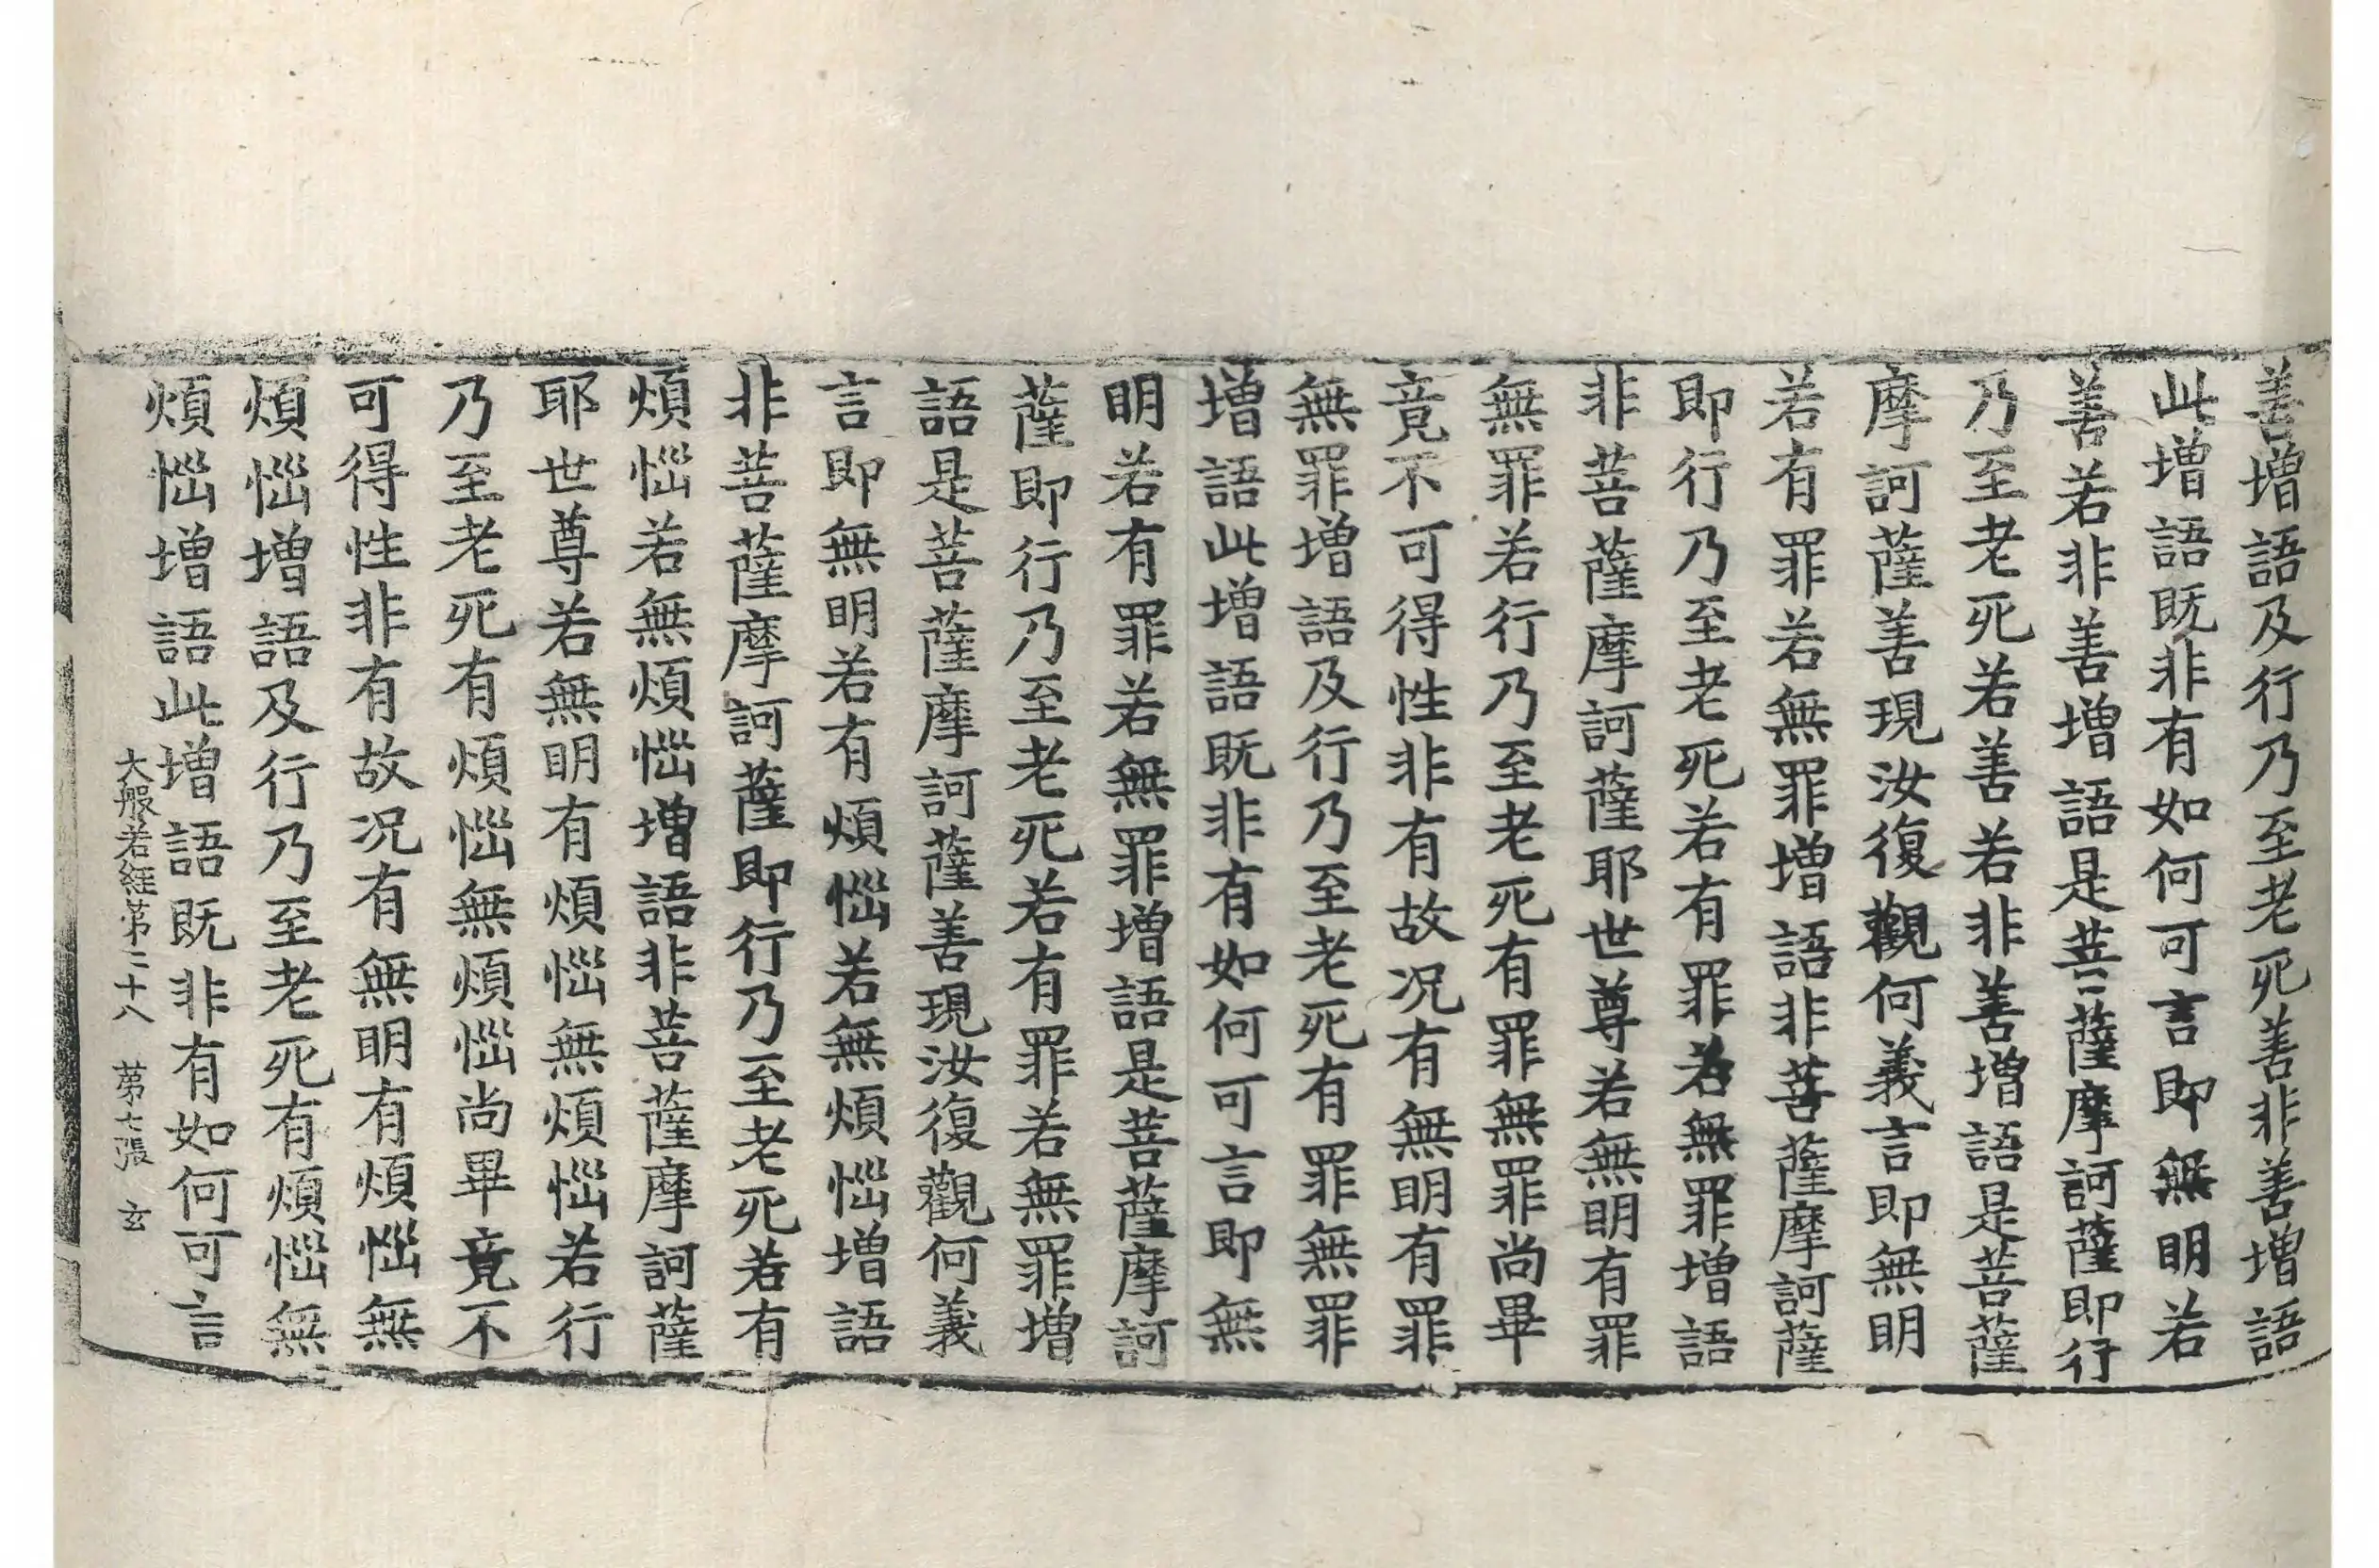 善增語及行乃至老死善非善增語
此增語既非有如何可言即無明若
善若非善增語是菩薩摩訶薩即行
乃至老死若善若非善增語是菩薩
摩訶薩善現汝復觀何義言即無明
若有罪若無罪增語非菩薩摩訶薩
即行乃至老死若有罪若無罪增語
非菩薩摩訶薩耶世尊若無明有罪
無罪若行乃至老死有罪無罪尚畢
竟不可得性非有故况有無明有罪
無罪增語及行乃至老死有罪無罪
增語此增語既非有如何可言即無
明若有罪若無罪增語是菩薩摩訶
薩即行乃至老死若有罪若無罪增
語是菩薩摩訶薩善現汝復觀何義
言即無明若有煩惱若無煩惱增語
非菩薩摩訶薩即行乃至老死若有
煩惱若無煩惱增語非菩薩摩訶薩
耶世尊若無明有煩惱無煩惱若行
乃至老死有煩惱無煩惱尚畢竟不
可得性非有故况有無明有煩惱無
煩惱增語及行乃至老死有煩惱無
煩惱增語此增語既非有如何可言
大般若経第二十八　第七張　玄